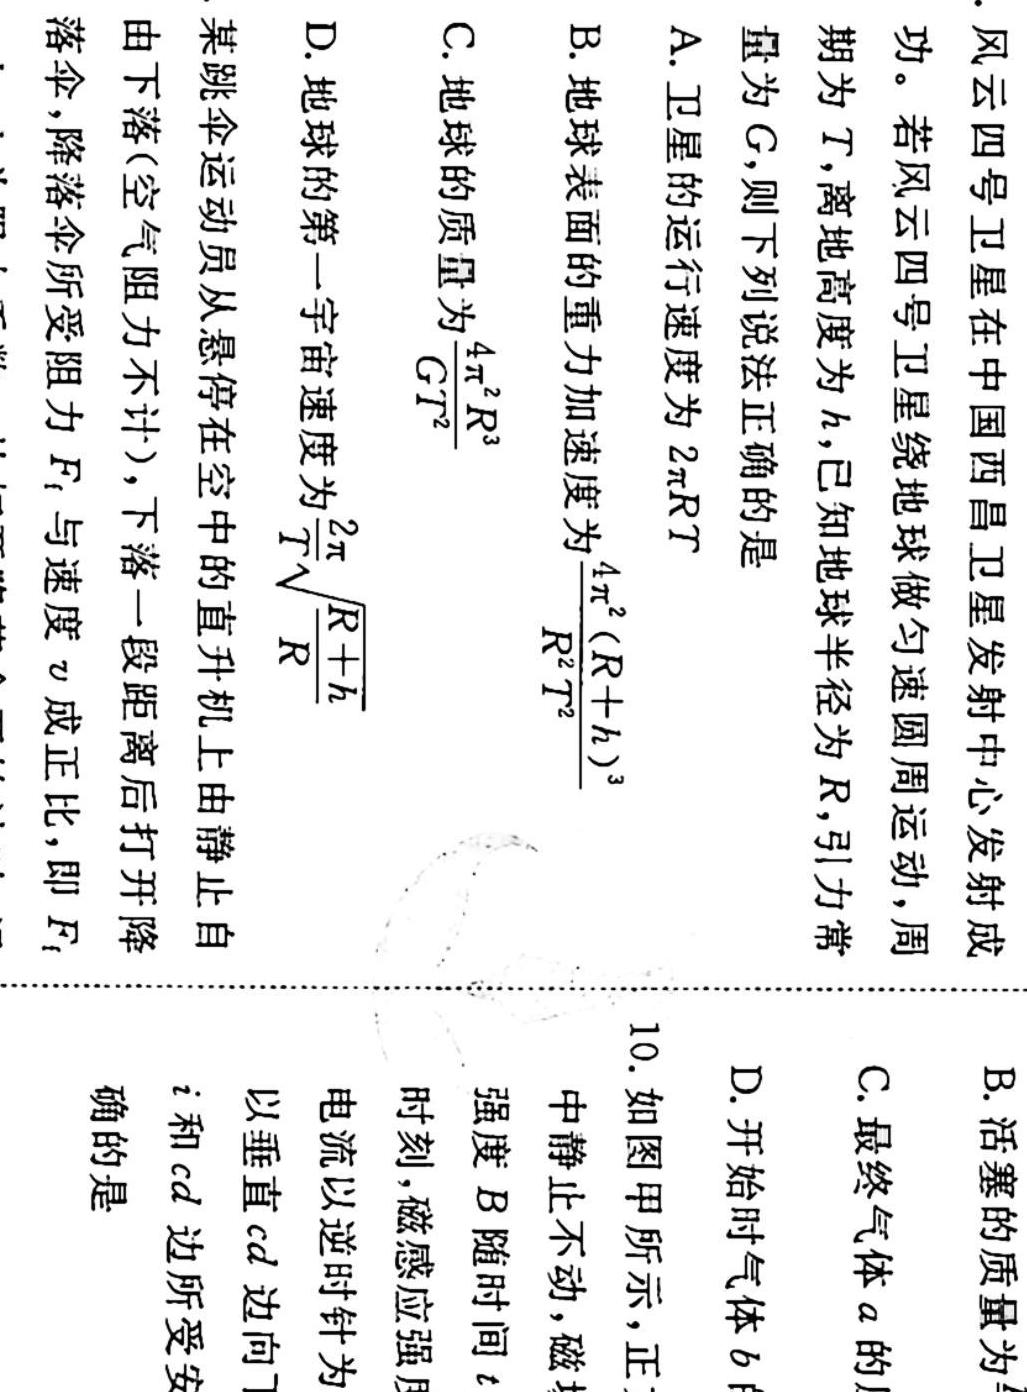 . 风云四号卫星在中国西昌卫星发射中心发射成
功。若风云四号卫星绕地球做匀速圆周运动,周
期为 T,离地高度为 h,已知地球半径为 R,引力常
量为 G,则下列说法正确的是
A. 卫星的运行速度为 2πRT
B. 地球表面的重力加速度为 4π²(R+h)³/R²T²
C. 地球的质量为 4π²R³/GT²
D. 地球的第一宇宙速度为 2π/T √((R+h)/R)
. 某跳伞运动员从悬停在空中的直升机上由静止自
由下落(空气阻力不计),下落一段距离后打开降
落伞,降落伞所受阻力 Ff 与速度 v 成正比,即 Ff
B. 活塞的质量为
C. 最终气体 a 的
D. 开始时气体 b 的
10. 如图甲所示,正
中静止不动,磁场
强度 B 随时间 t
时刻,磁感应强度
电流以逆时针为
以垂直 cd 边向下
i 和 cd 边所受安
确的是